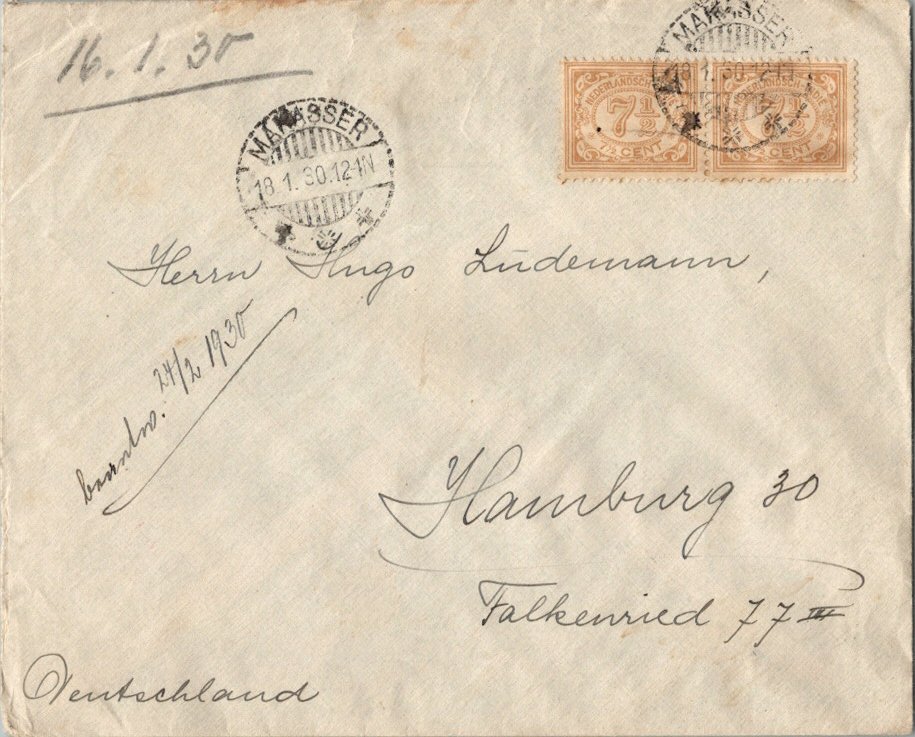 16.1.30
MAKASSER
18.1.30.12-1N
MAKASSER
18.1.30.12-1N
NEDERLANDSCH-INDIE
7½
7½ CENT
NEDERLANDSCH-INDIE
7½
7½ CENT
Herrn Hugo Lüdemann,
beantw. 24/2 1930
Hamburg 30
Falkenried 77 III
Deutschland